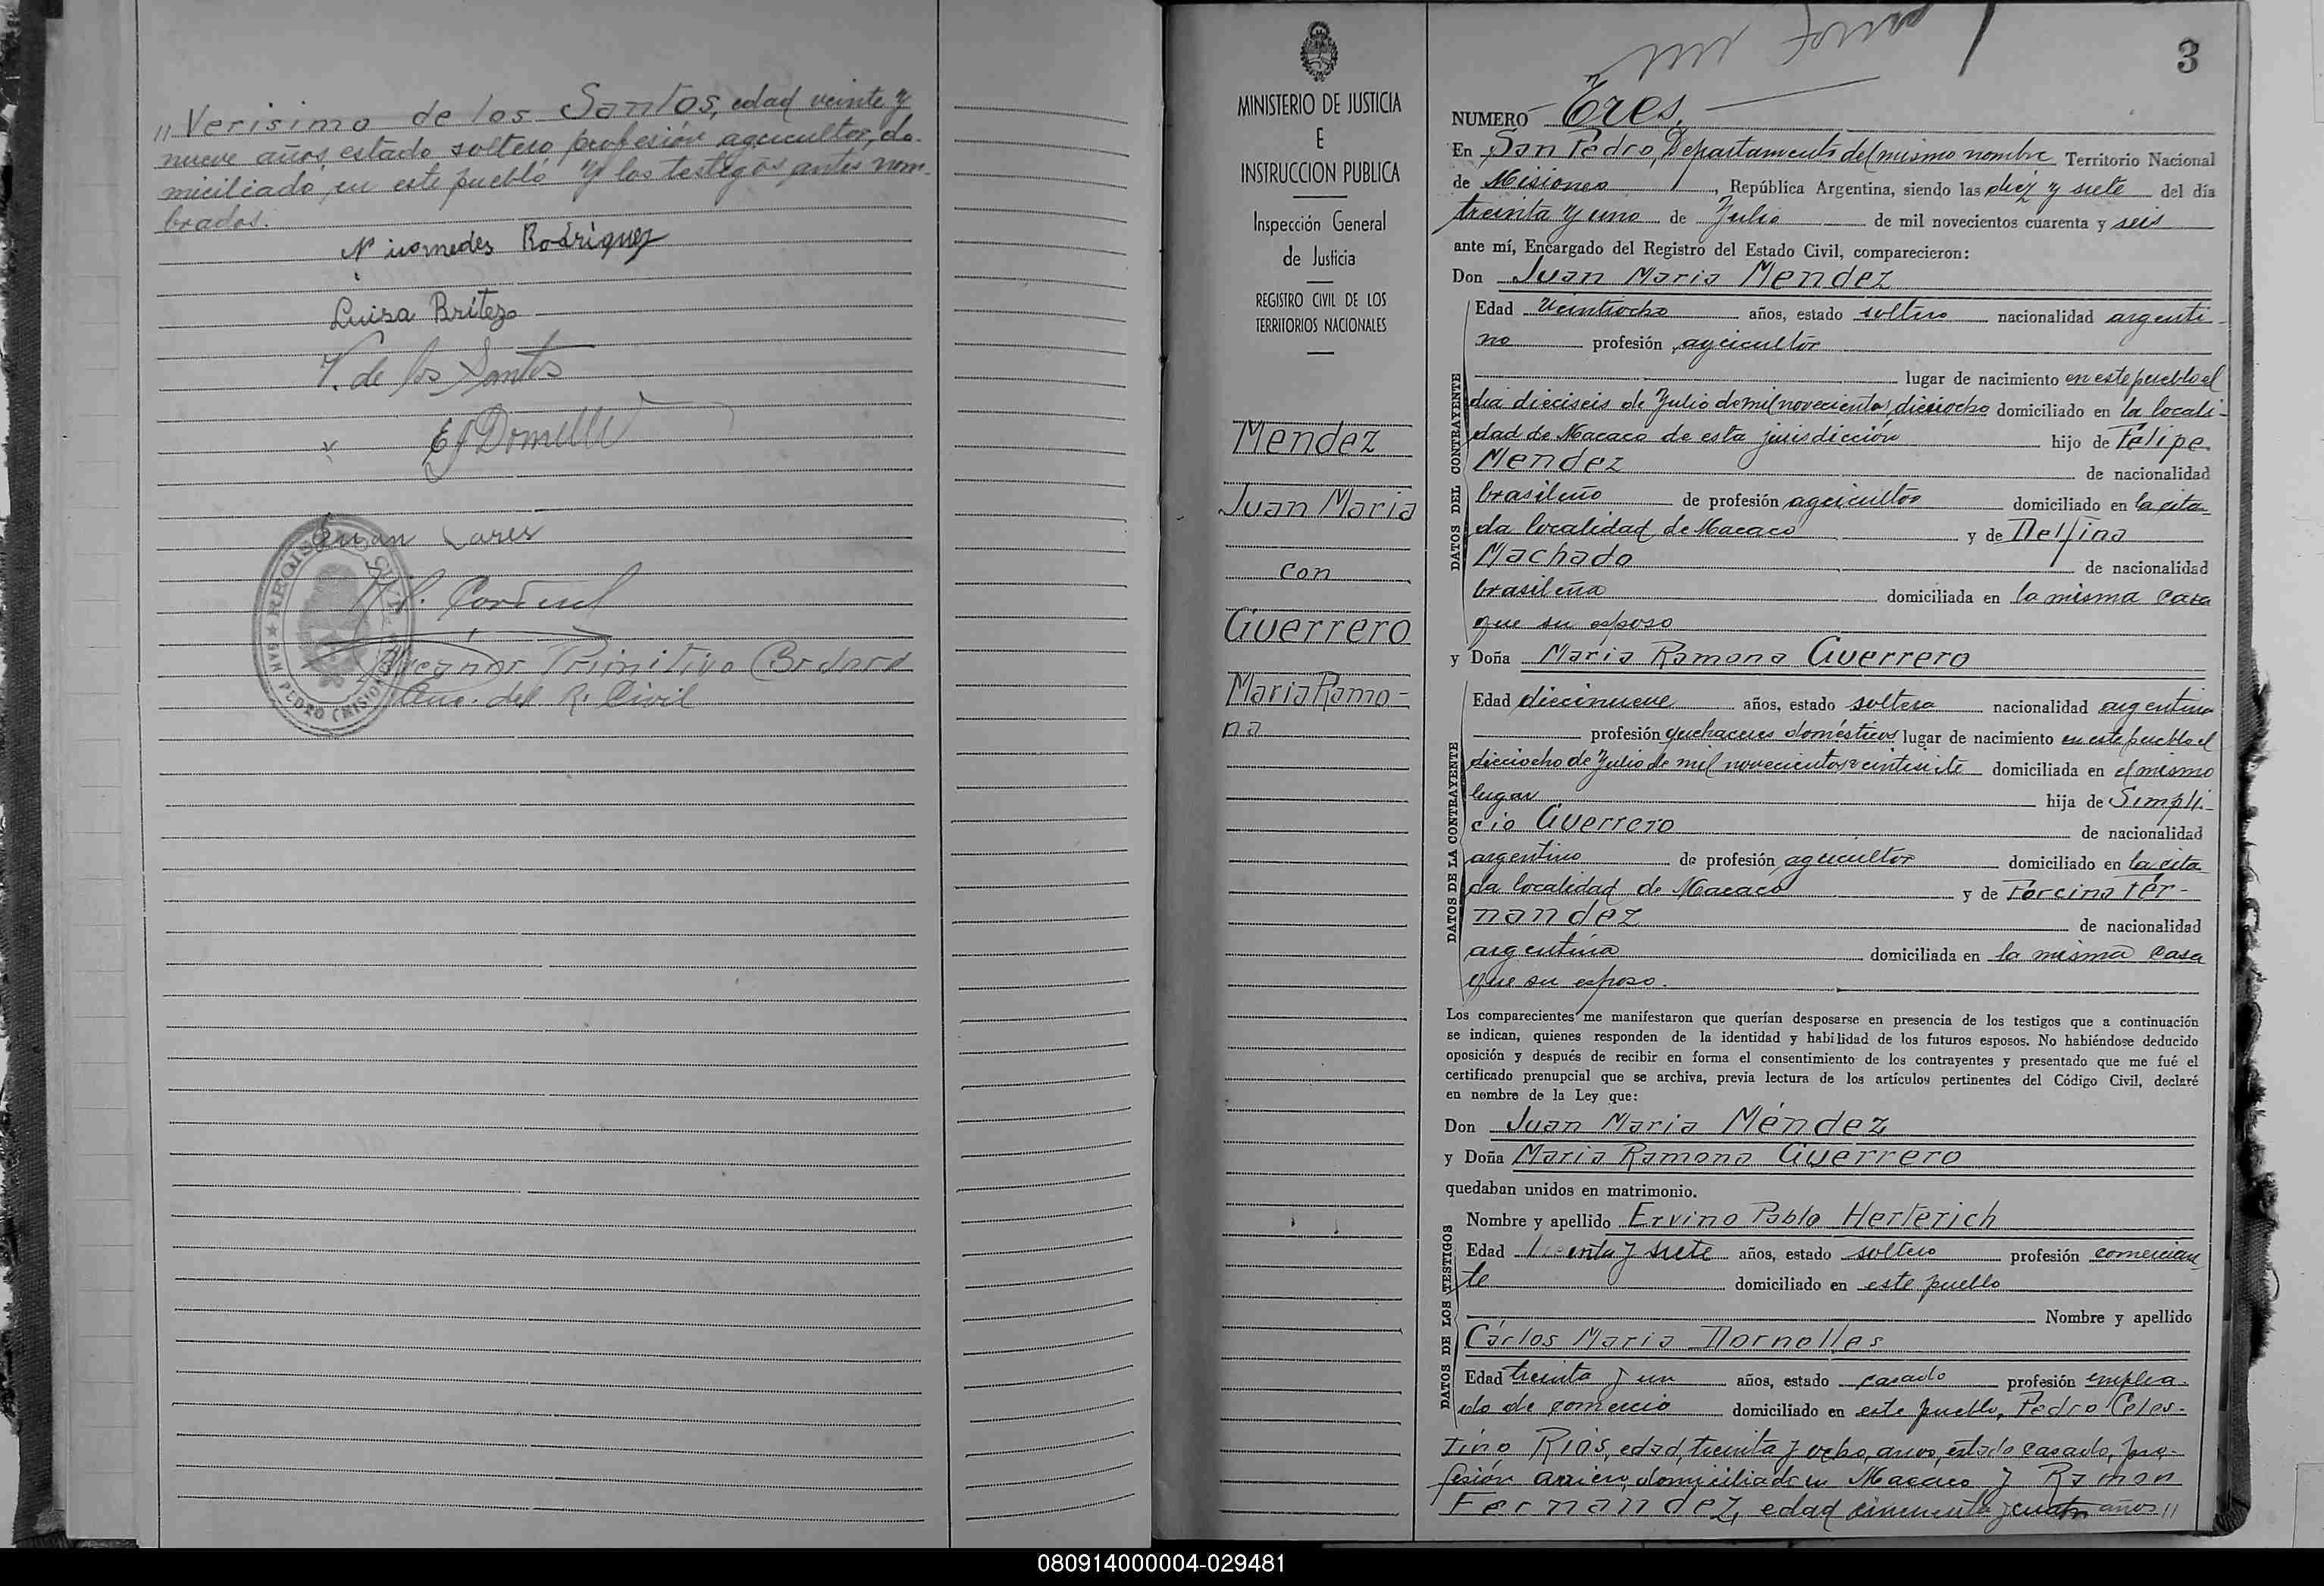 // Verisimo de los Santos, edad veinte y
nueve años, estado soltero profesión agricultor, do-
miciliado en este pueblo y los testigos antes nom-
brados.
Nicomedes Rodriguez
Luisa Britezo
V. de los Santos
REGISTRO CIVIL
SAN PEDRO (MISIONES)
Primitivo
Enc. del R. Civil
MINISTERIO DE JUSTICIA
E
INSTRUCCION PUBLICA
Inspección General
de Justicia
REGISTRO CIVIL DE LOS
TERRITORIOS NACIONALES
Mendez
Juan Maria
con
Guerrero
Maria Ramo-
na
3
NUMERO Tres,
En San Pedro, Departamento del mismo nombre Territorio Nacional
de Misiones, República Argentina, siendo las diez y siete del día
treinta y uno de Julio de mil novecientos cuarenta y seis
ante mí, Encargado del Registro del Estado Civil, comparecieron:
Don Juan Maria Mendez
DATOS DEL CONTRAYENTE
Edad veintiocho años, estado soltero nacionalidad argenti-
no profesión agricultor
lugar de nacimiento en este pueblo el
dia dieciseis de Julio de mil novecientos dieciocho domiciliado en la locali-
dad de Macaco de esta jurisdicción hijo de Felipe
Mendez de nacionalidad
brasileño de profesión agricultor domiciliado en la cita-
da localidad de Macaco y de Delfina
Machado de nacionalidad
brasileña domiciliada en la misma casa
que su esposo
y Doña Maria Ramona Guerrero
DATOS DE LA CONTRAYENTE
Edad diecinueve años, estado soltera nacionalidad argentina
profesión quehaceres domésticos lugar de nacimiento en este pueblo el
dieciocho de Julio de mil novecientos veintisiete domiciliada en el mismo
lugar hija de Simpli-
cio Guerrero de nacionalidad
argentino de profesión agricultor domiciliado en la cita
da localidad de Macaco y de Forcina Fer-
nandez de nacionalidad
argentina domiciliada en la misma casa
que su esposo.
Los comparecientes me manifestaron que querían desposarse en presencia de los testigos que a continuación
se indican, quienes responden de la identidad y habilidad de los futuros esposos. No habiéndose deducido
oposición y después de recibir en forma el consentimiento de los contrayentes y presentado que me fué el
certificado prenupcial que se archiva, previa lectura de los artículos pertinentes del Código Civil, declaré
en nombre de la Ley que:
Don Juan Maria Méndez
y Doña Maria Ramona Guerrero
quedaban unidos en matrimonio.
DATOS DE LOS TESTIGOS
Nombre y apellido Ervino Pablo Herterich
Edad treinta y siete años, estado soltero profesión comercian
te domiciliado en este pueblo
Nombre y apellido
Cárlos Maria Dornelles
Edad treinta y un años, estado casado profesión emplea-
do de comercio domiciliado en este pueblo, Pedro Celes-
tino Rios, edad, treinta y ocho, anos, estado casado, pro-
fesión arriero, domiciliado en Macaco y Ramon
Fernandez, edad cincuenta y cuatro años //
080914000004-029481